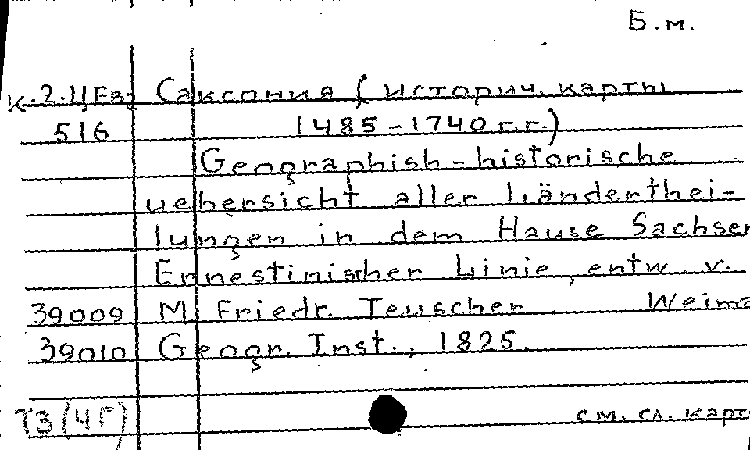 Б.м.
К.2.ЦЕв Саксония (историч. карты
516 1485-1740 г.г.)
Geographish-historische
uebersicht aller Länderthei-
lungen in dem Hause Sachsen
Ernestinischer Linie, entw. v.
39009 M. Friedr. Teuscher. Weima
39010 Geogr. Inst., 1825.
Т3(4Г) см. сл. карт